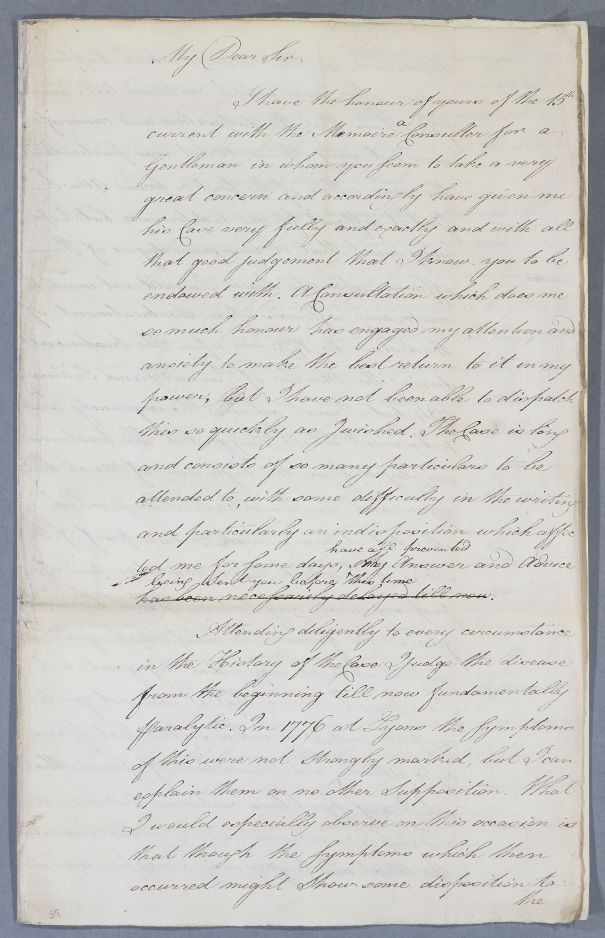 My Dear Sir
I have the honour of yours of the 15th
current with the Memoire a Consulter for a
Gentleman in whom you seem to take a very
great concern and accordingly have given me
his Case very fully and exactly and with all
that good judgement that I know you to be
endowed with. A Consultation which does me
so much honour has engaged my attention and
anxiety to make the best return to it in my
power, but I have not been able to dispatch
this so quickly as I wished. The Case is long
and consists of so many particulars to be
attended to, with some difficulty in the writing
and particularly an indisposition which affec
have all prevented
ted me for some days, My Answer and Advice
being sent you before this time
has been necessarily delayed till now.
Attending diligently to every circumstance
in the History of the Case I judge the disease
from the beginning till now fundamentally
Paralytic. In 1776 at Lyons the Symptoms
of this were not strongly marked, but I can
explain them on no other Supposition. What
I would especially observe on this occasion is
that though the Symptoms which then
occurred might show some disposition to
the
59